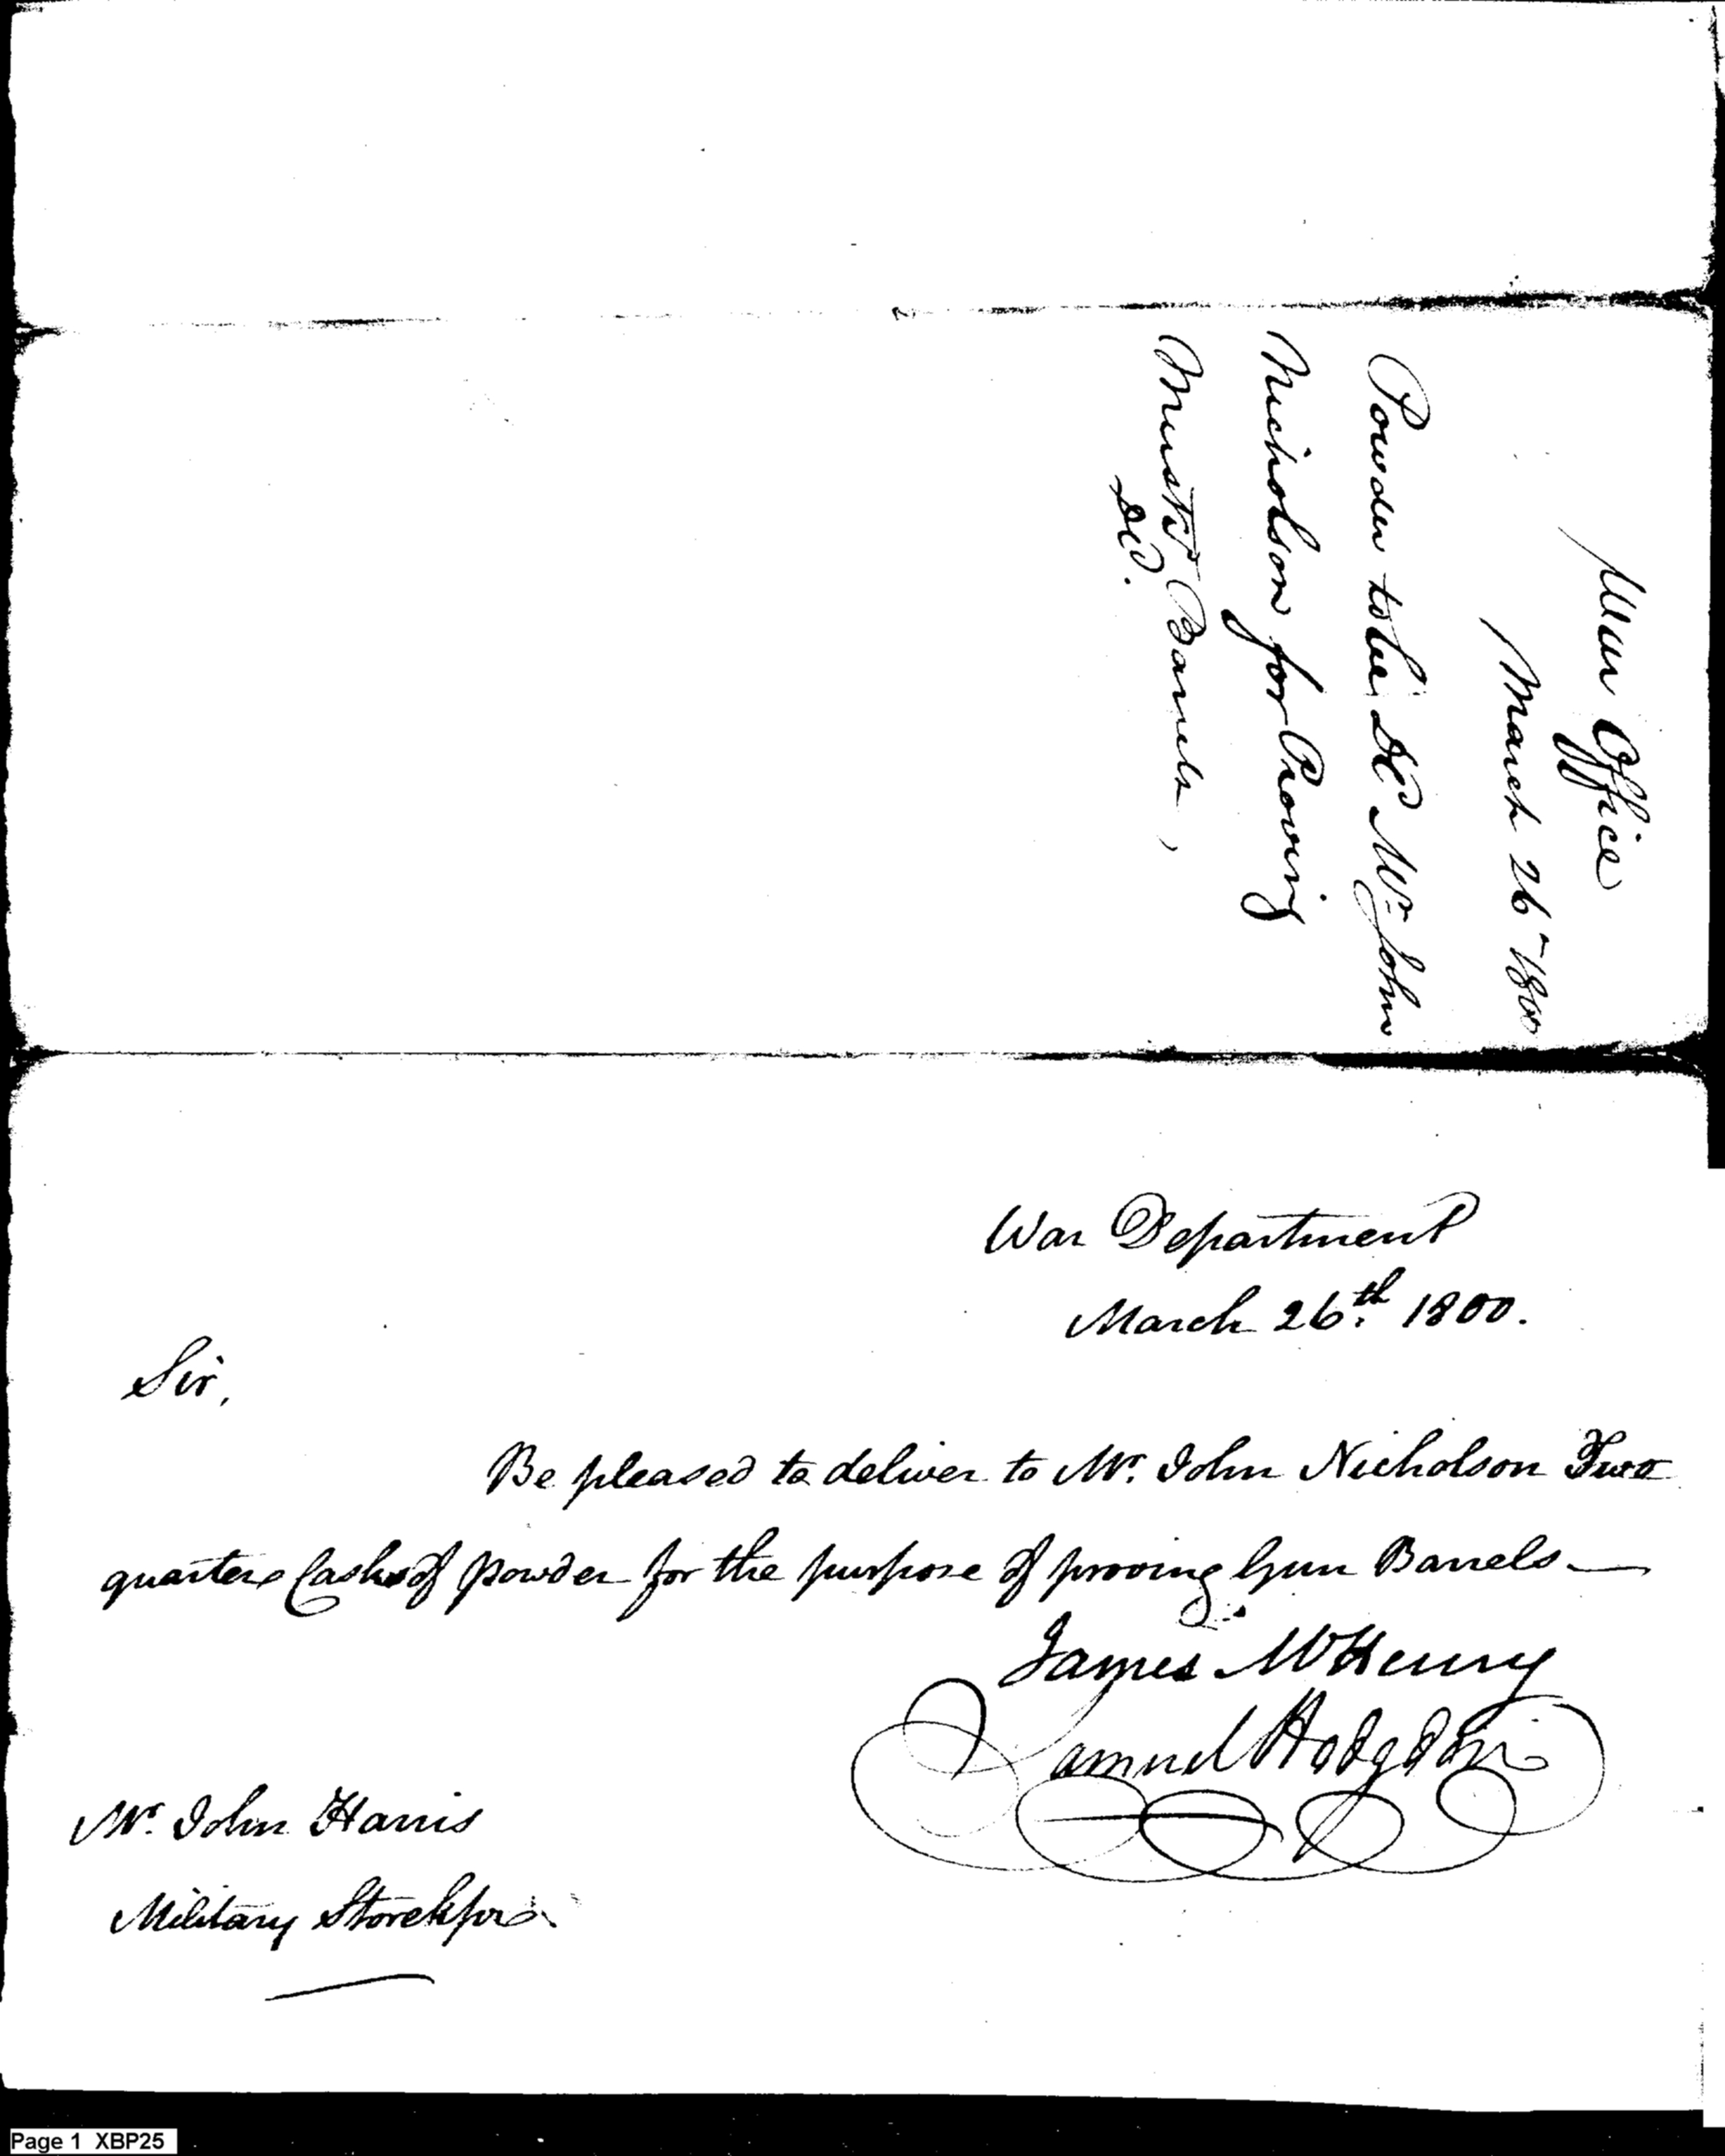 War Office
March 26th 1800
Powder to be Dd Mr John
Nicholson for Proving
Muskt Barrels,
War Department
March 26th. 1800.
Sir,
Be pleased to deliver to Mr. John Nicholson Two
quarter Casks of powder for the purpose of proving Gun Barrels.
James McHenry
Samuel Hodgdon
Mr. John Harris
Military Storekpr
Page 1 XBP25